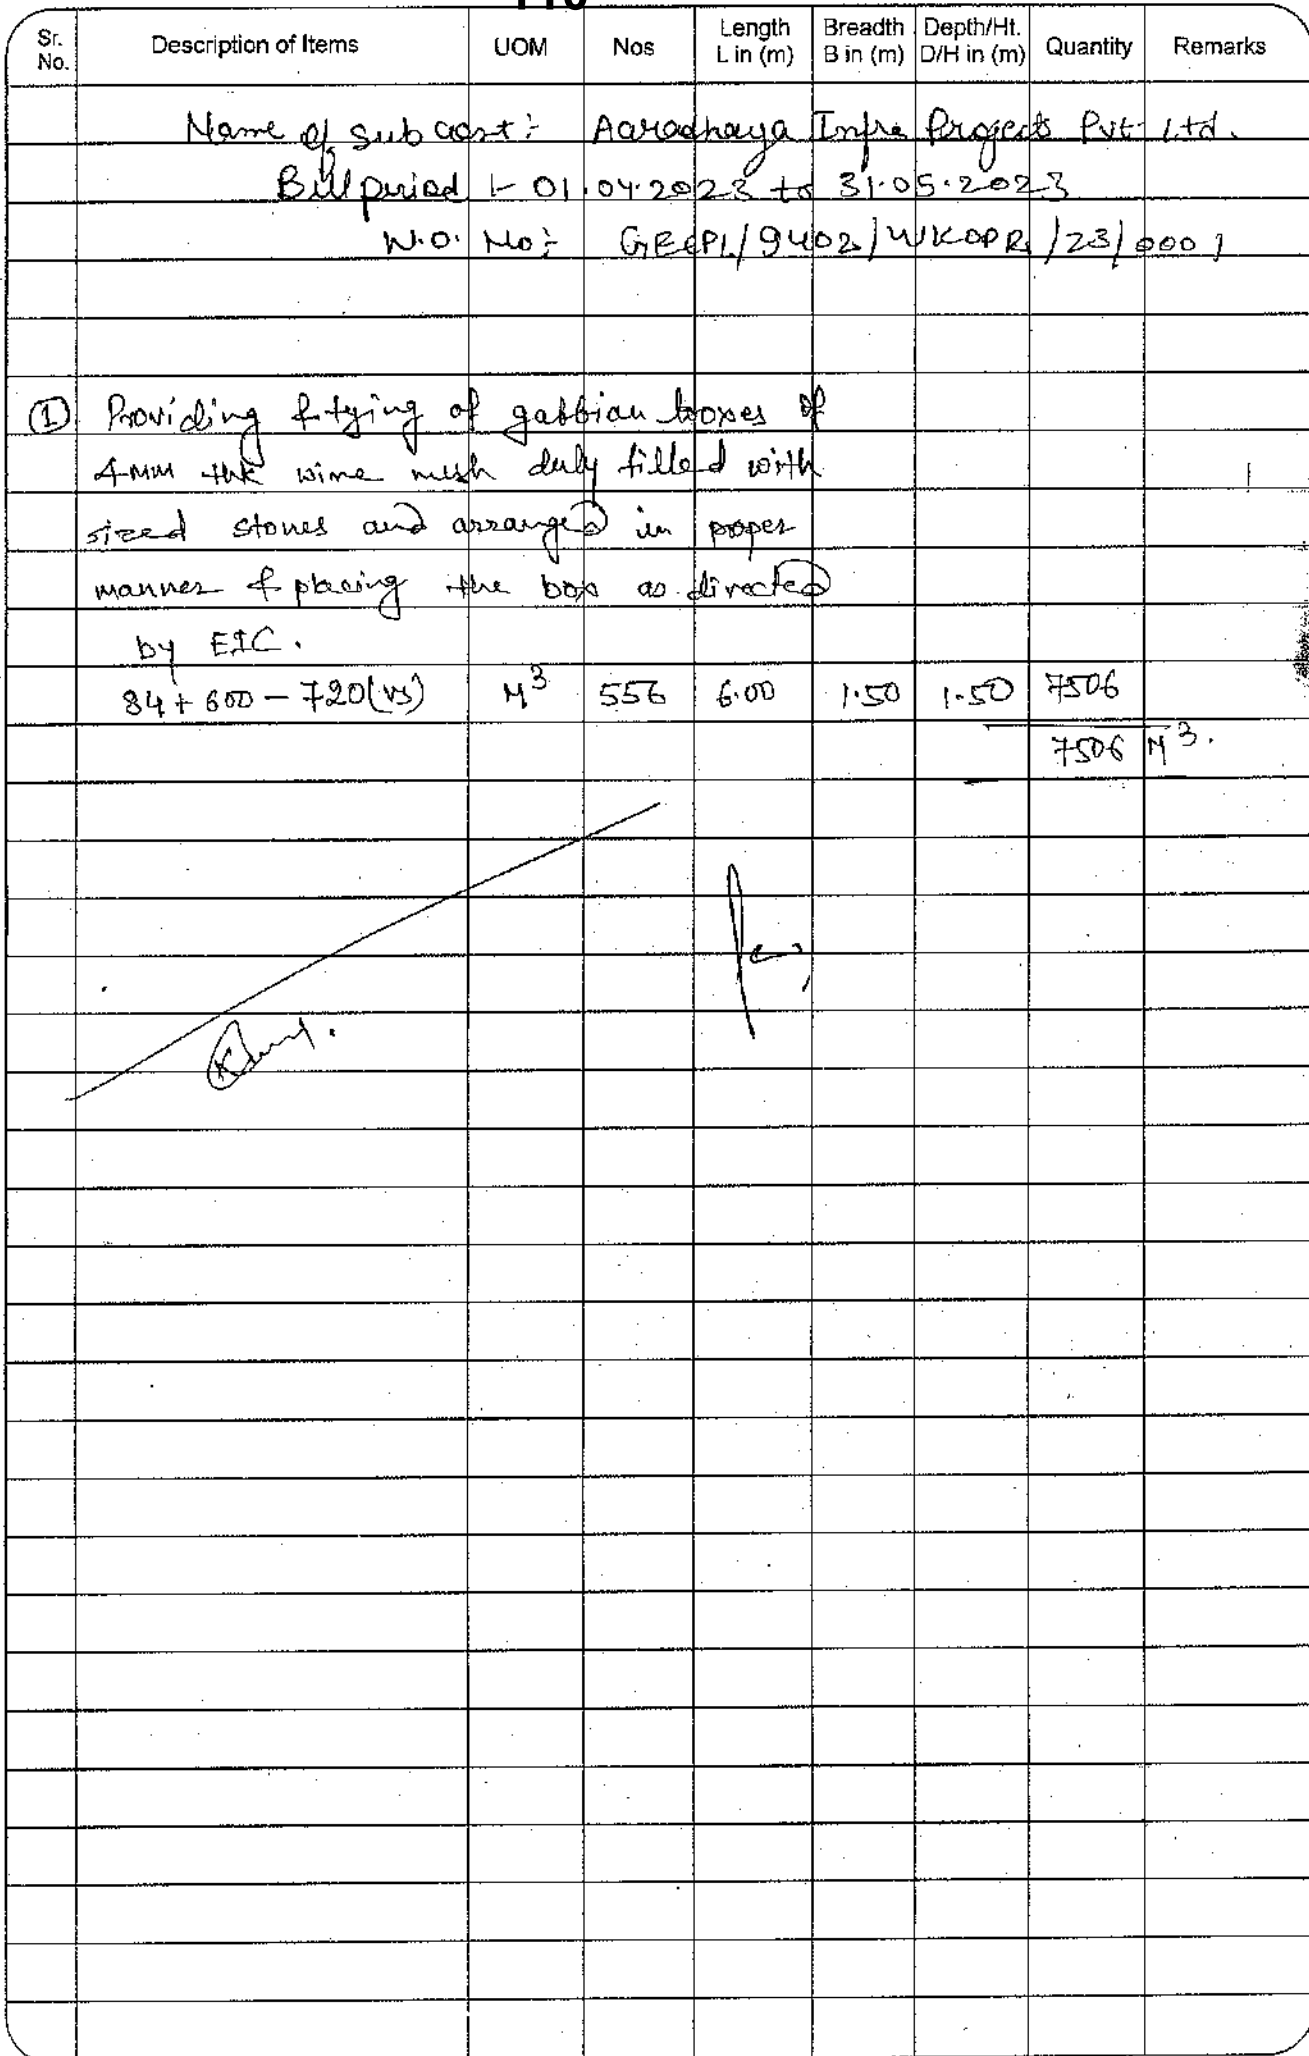 Sr. No. Description of Items UOM Nos Length L in (m) Breadth B in (m) Depth/Ht. D/H in (m) Quantity Remarks
Name of Sub cont:- Aaradhaya Infra Projects Pvt Ltd.
Bill period :- 01.04.2023 to 31.05.2023
W.O. No:- GECPL/9402/WKOPR/23/0001
① Providing & tying of gabbian boxes of
4-MM thk wire mesh duly filled with
sized stones and arranged in proper
manner & placing the box as directed
by EIC.
84+600-720(vs) M³ 556 6.00 1.50 1.50 7506
7506 M³.